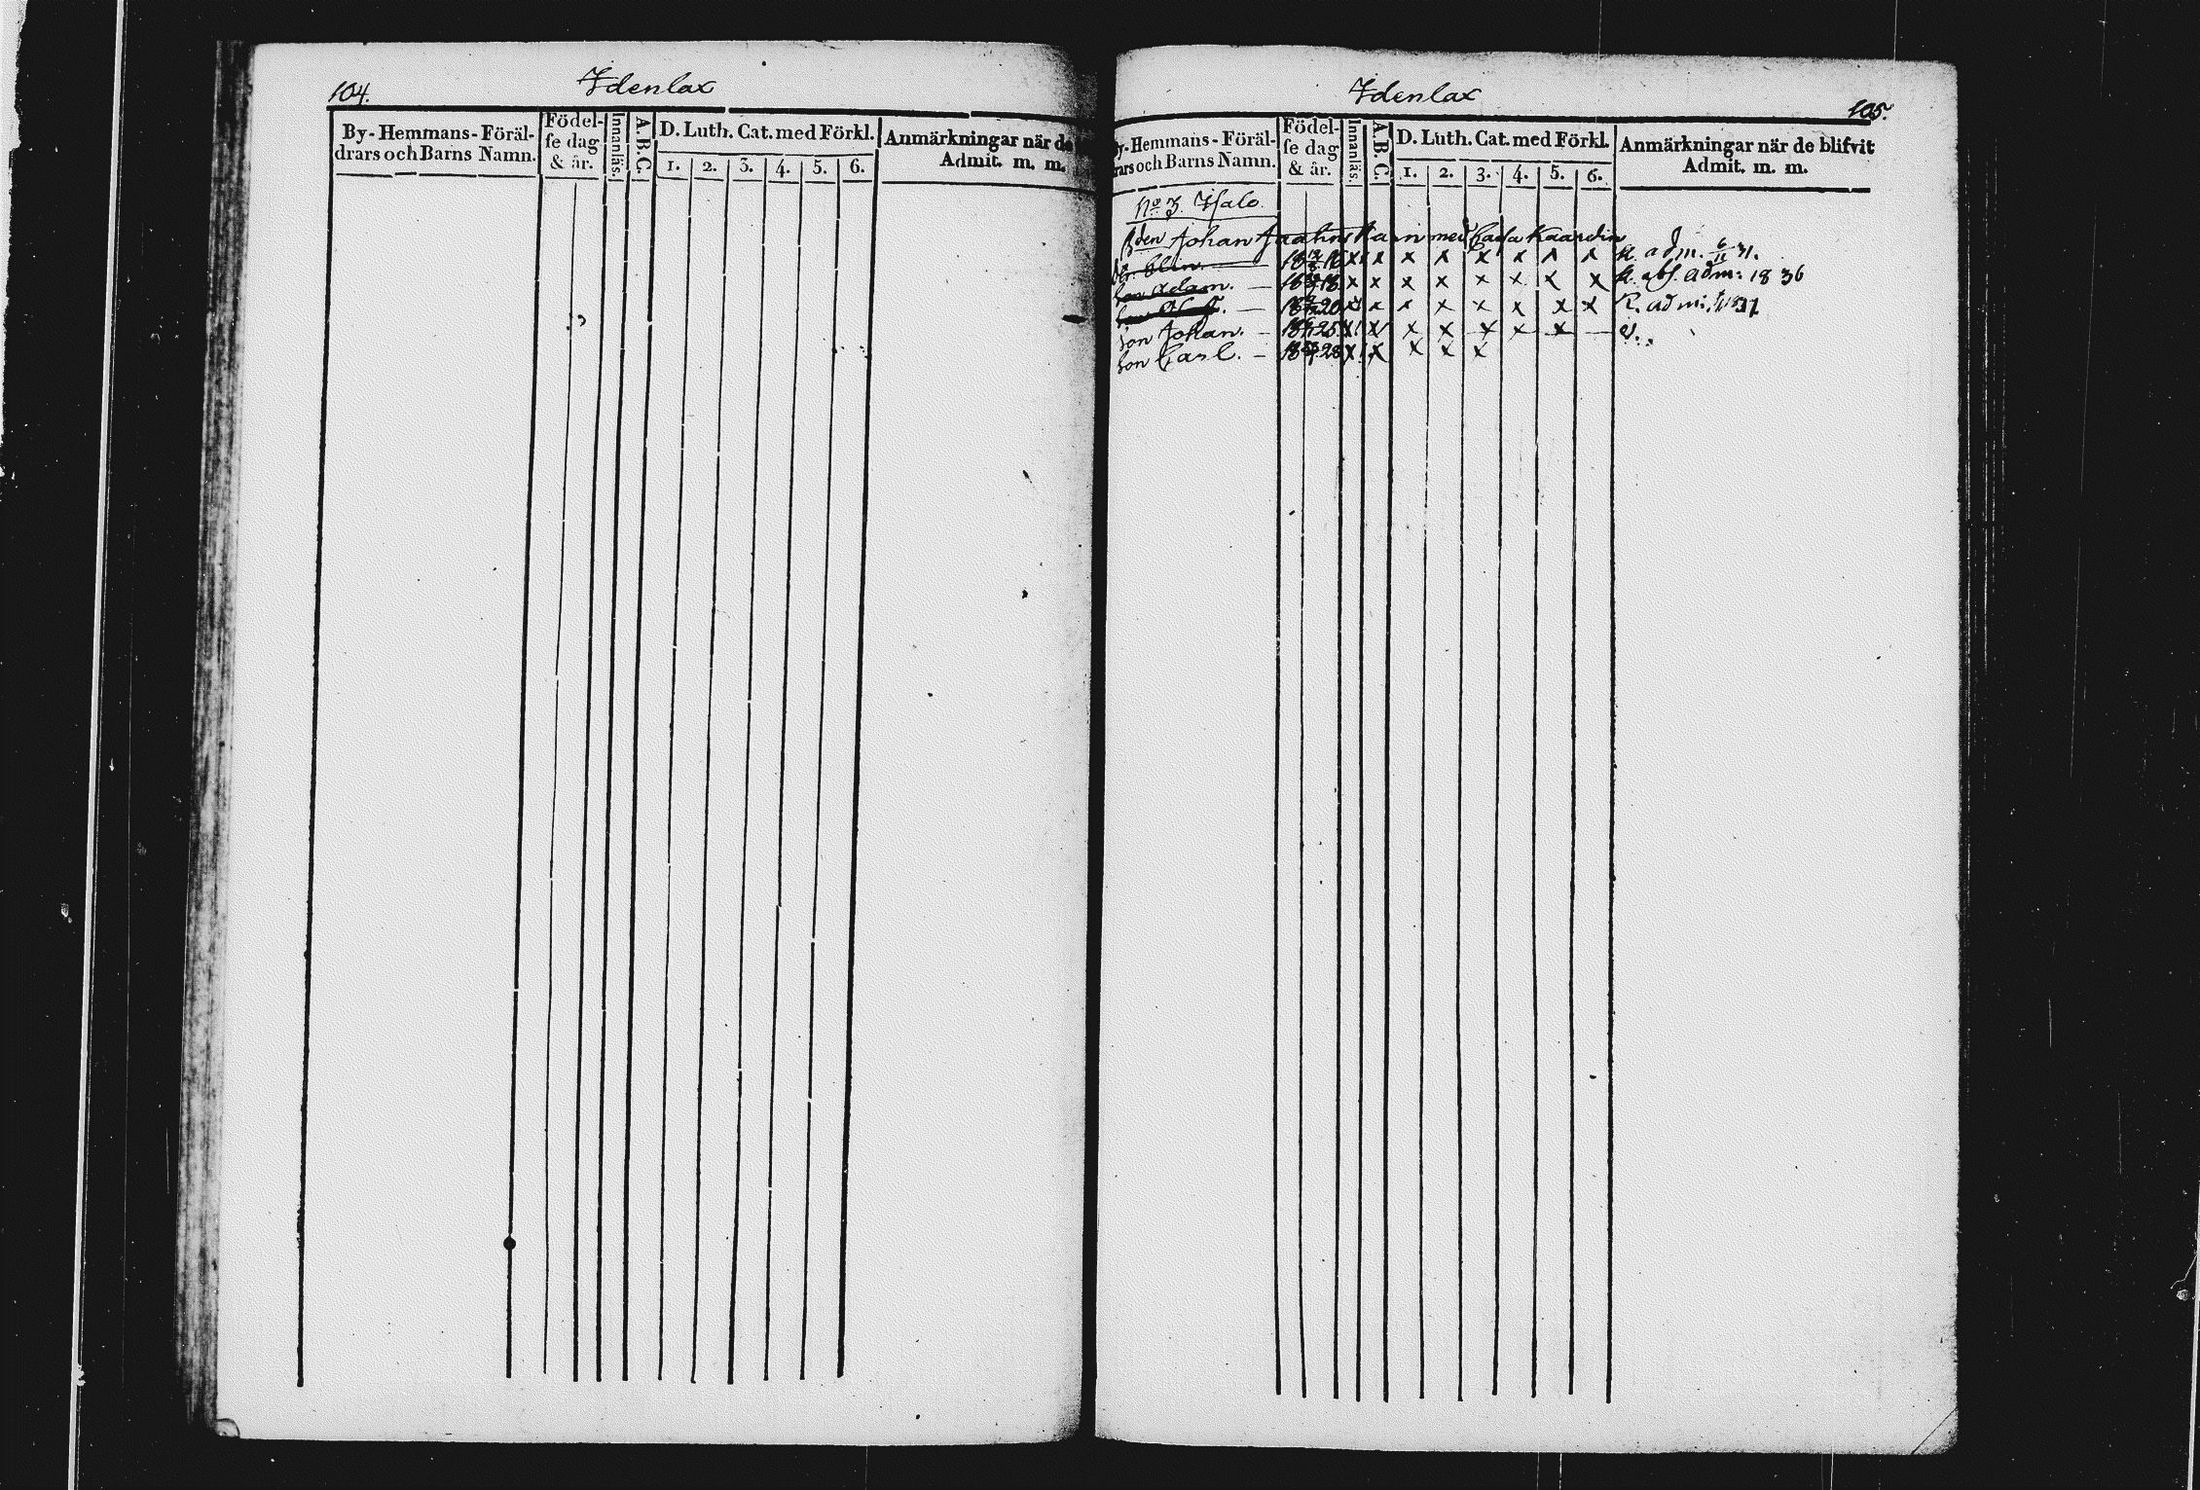 104.
Idenlax
By-Hemmans-Föräl-
drars och Barns Namn.
Födel-
se dag
& år.
Innanläs.
A.B.C.
D. Luth. Cat. med Förkl.
1. 2. 3. 4. 5. 6.
Anmärkningar när de
Admit. m. m.
Idenlax
105.
y-Hemmans-Föräl-
rars och Barns Namn.
Födel-
se dag
& år.
Innanläs.
A.B.C.
D. Luth. Cat. med Förkl.
1. 2. 3. 4. 5. 6.
Anmärkningar när de blifvit
Admit. m. m.
No 3. Isalo.
Bden Johan med Caisa
16 x x x x x x x x adm. 6/11 31.
Son Adam. — 18 x x x x x x x x adm: 1836
— 20 x x x x x x x x R. adm:
Son Johan. — 25 x x x x x x x —
Son Carl. — 28 x x x x x